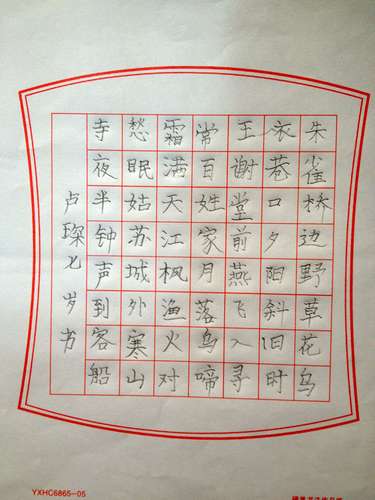 朱雀桥边野草花乌
衣巷口夕阳斜旧时
王谢堂前燕飞入寻
常百姓家月落乌啼
霜满天江枫渔火对
愁眠姑苏城外寒山
寺夜半钟声到客船
卢琛七岁
YXHC6865-05